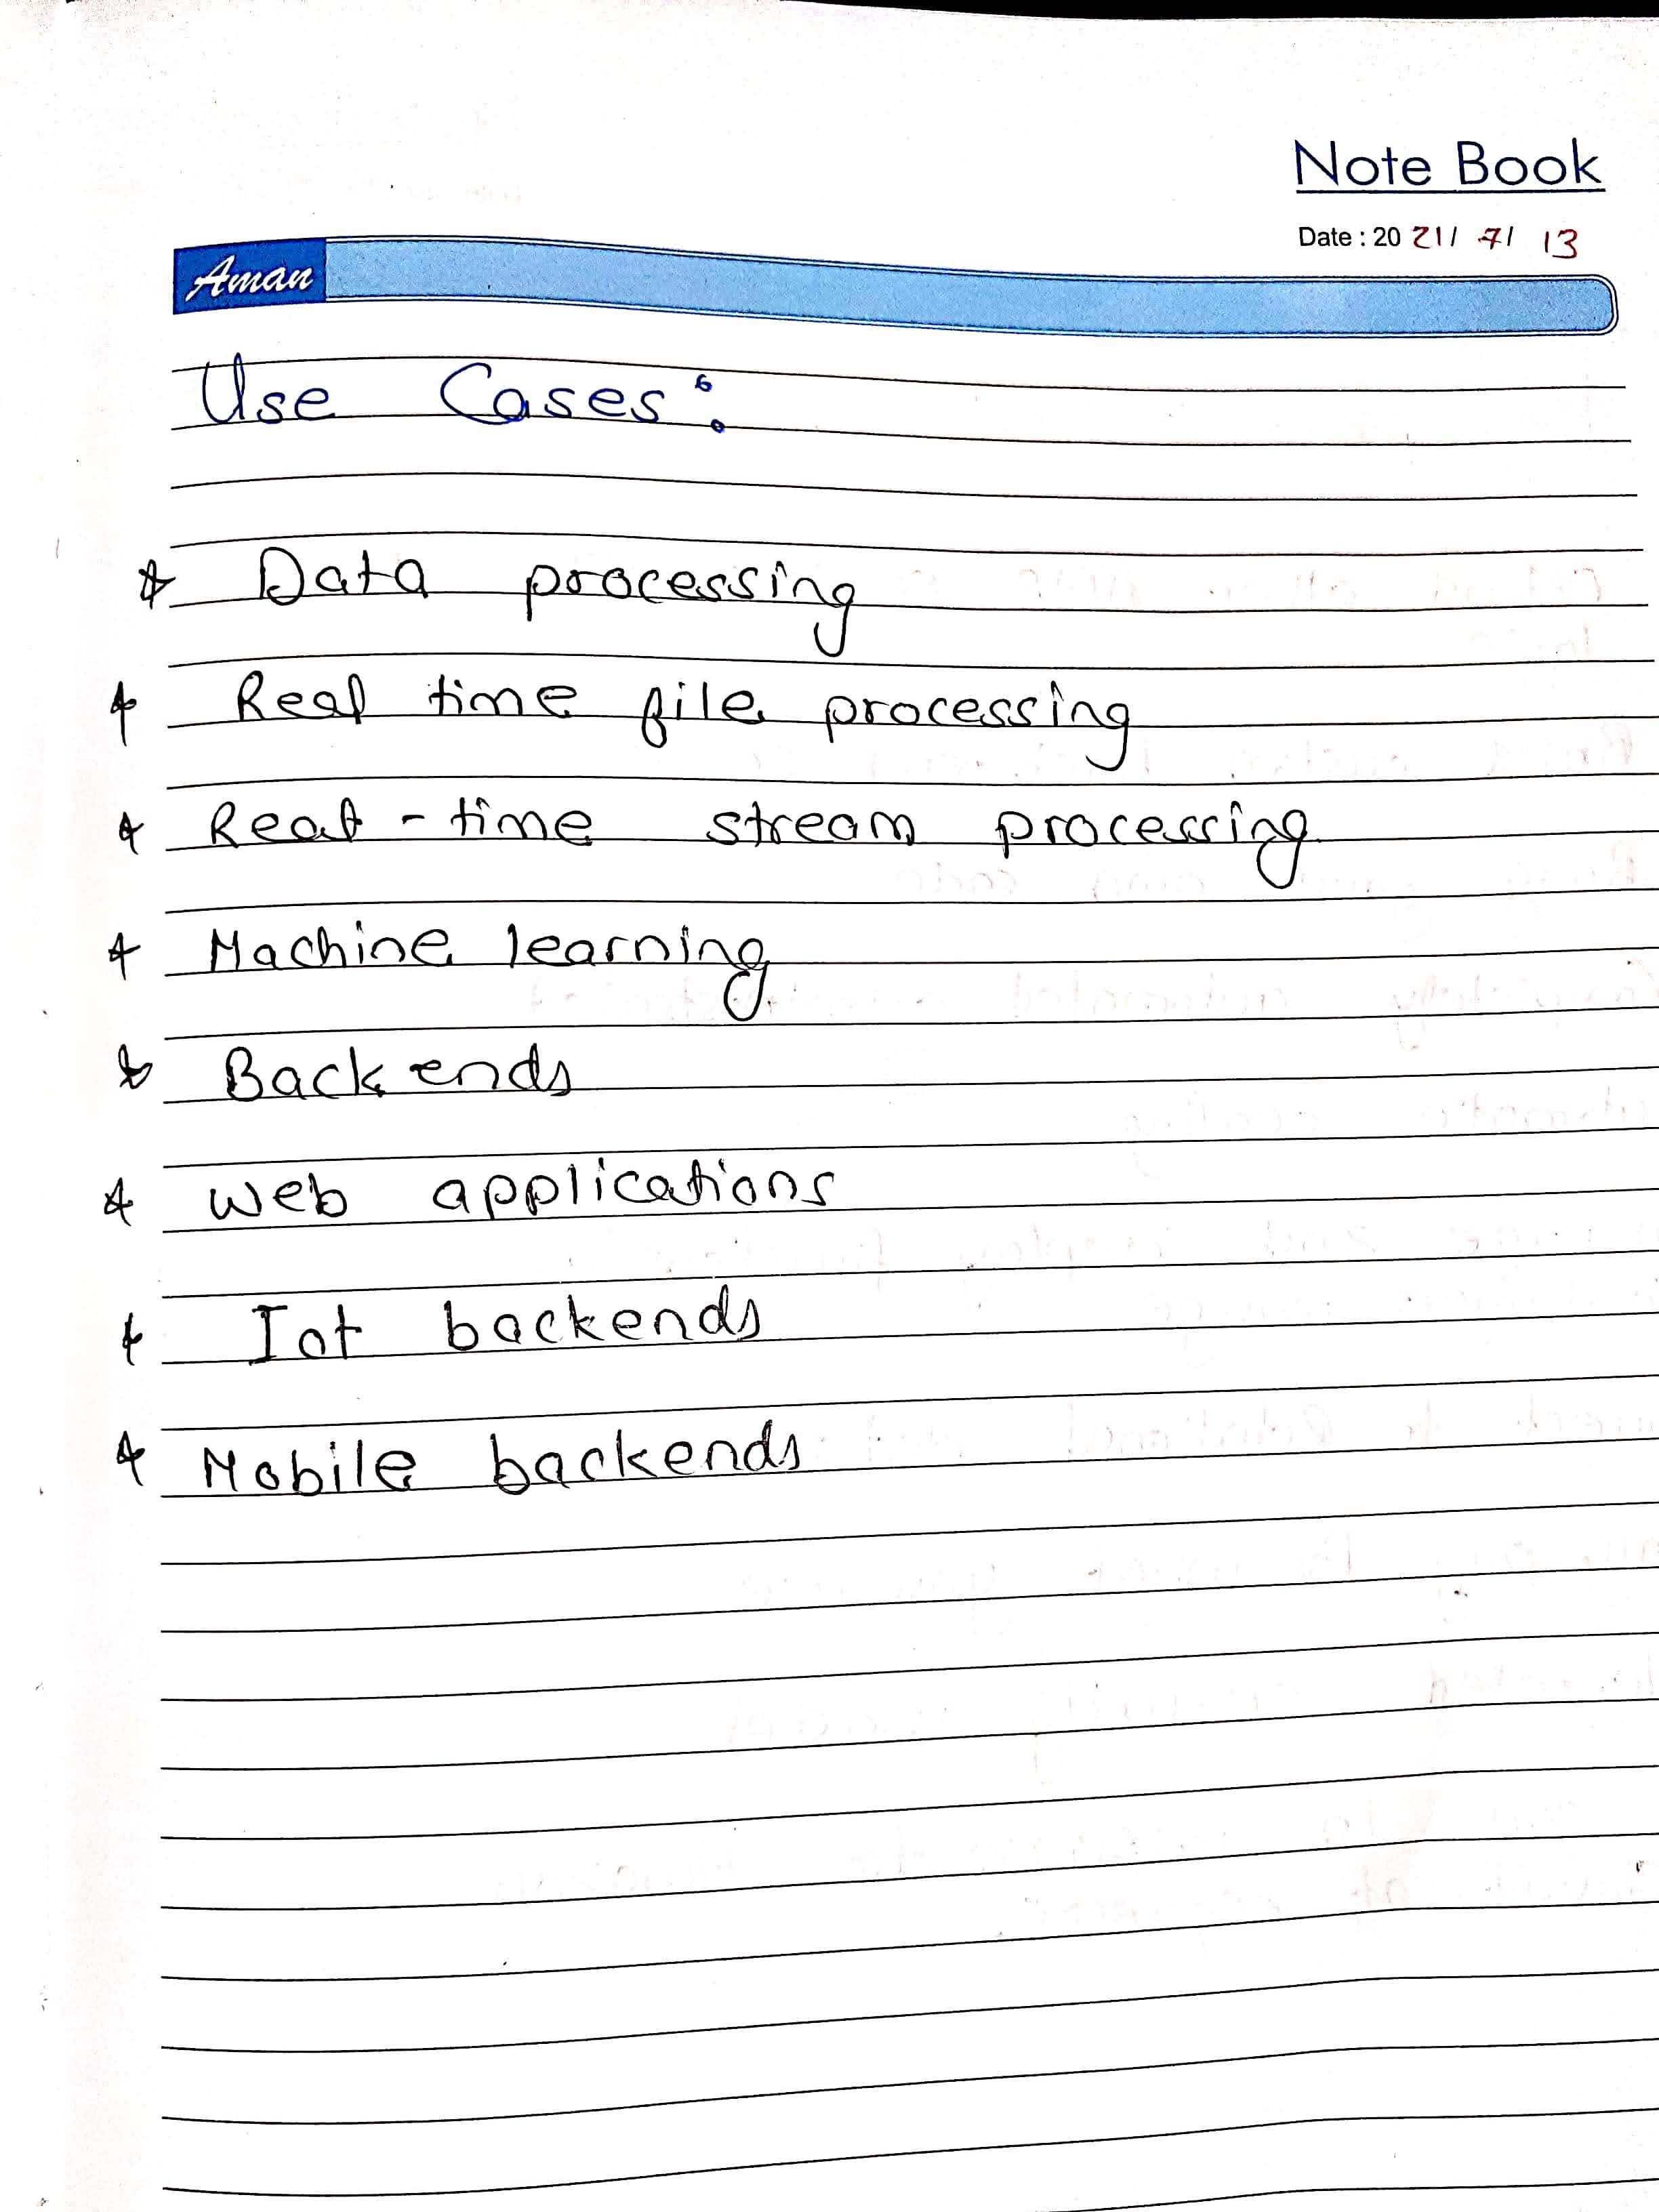 Note Book
Date : 20 21/ 7/ 13
Aman
Use Cases:
* Data processing
* Real time file processing
* Real-time stream processing
* Machine learning
* Backends
* Web applications
* Iot backends
* Mobile backends